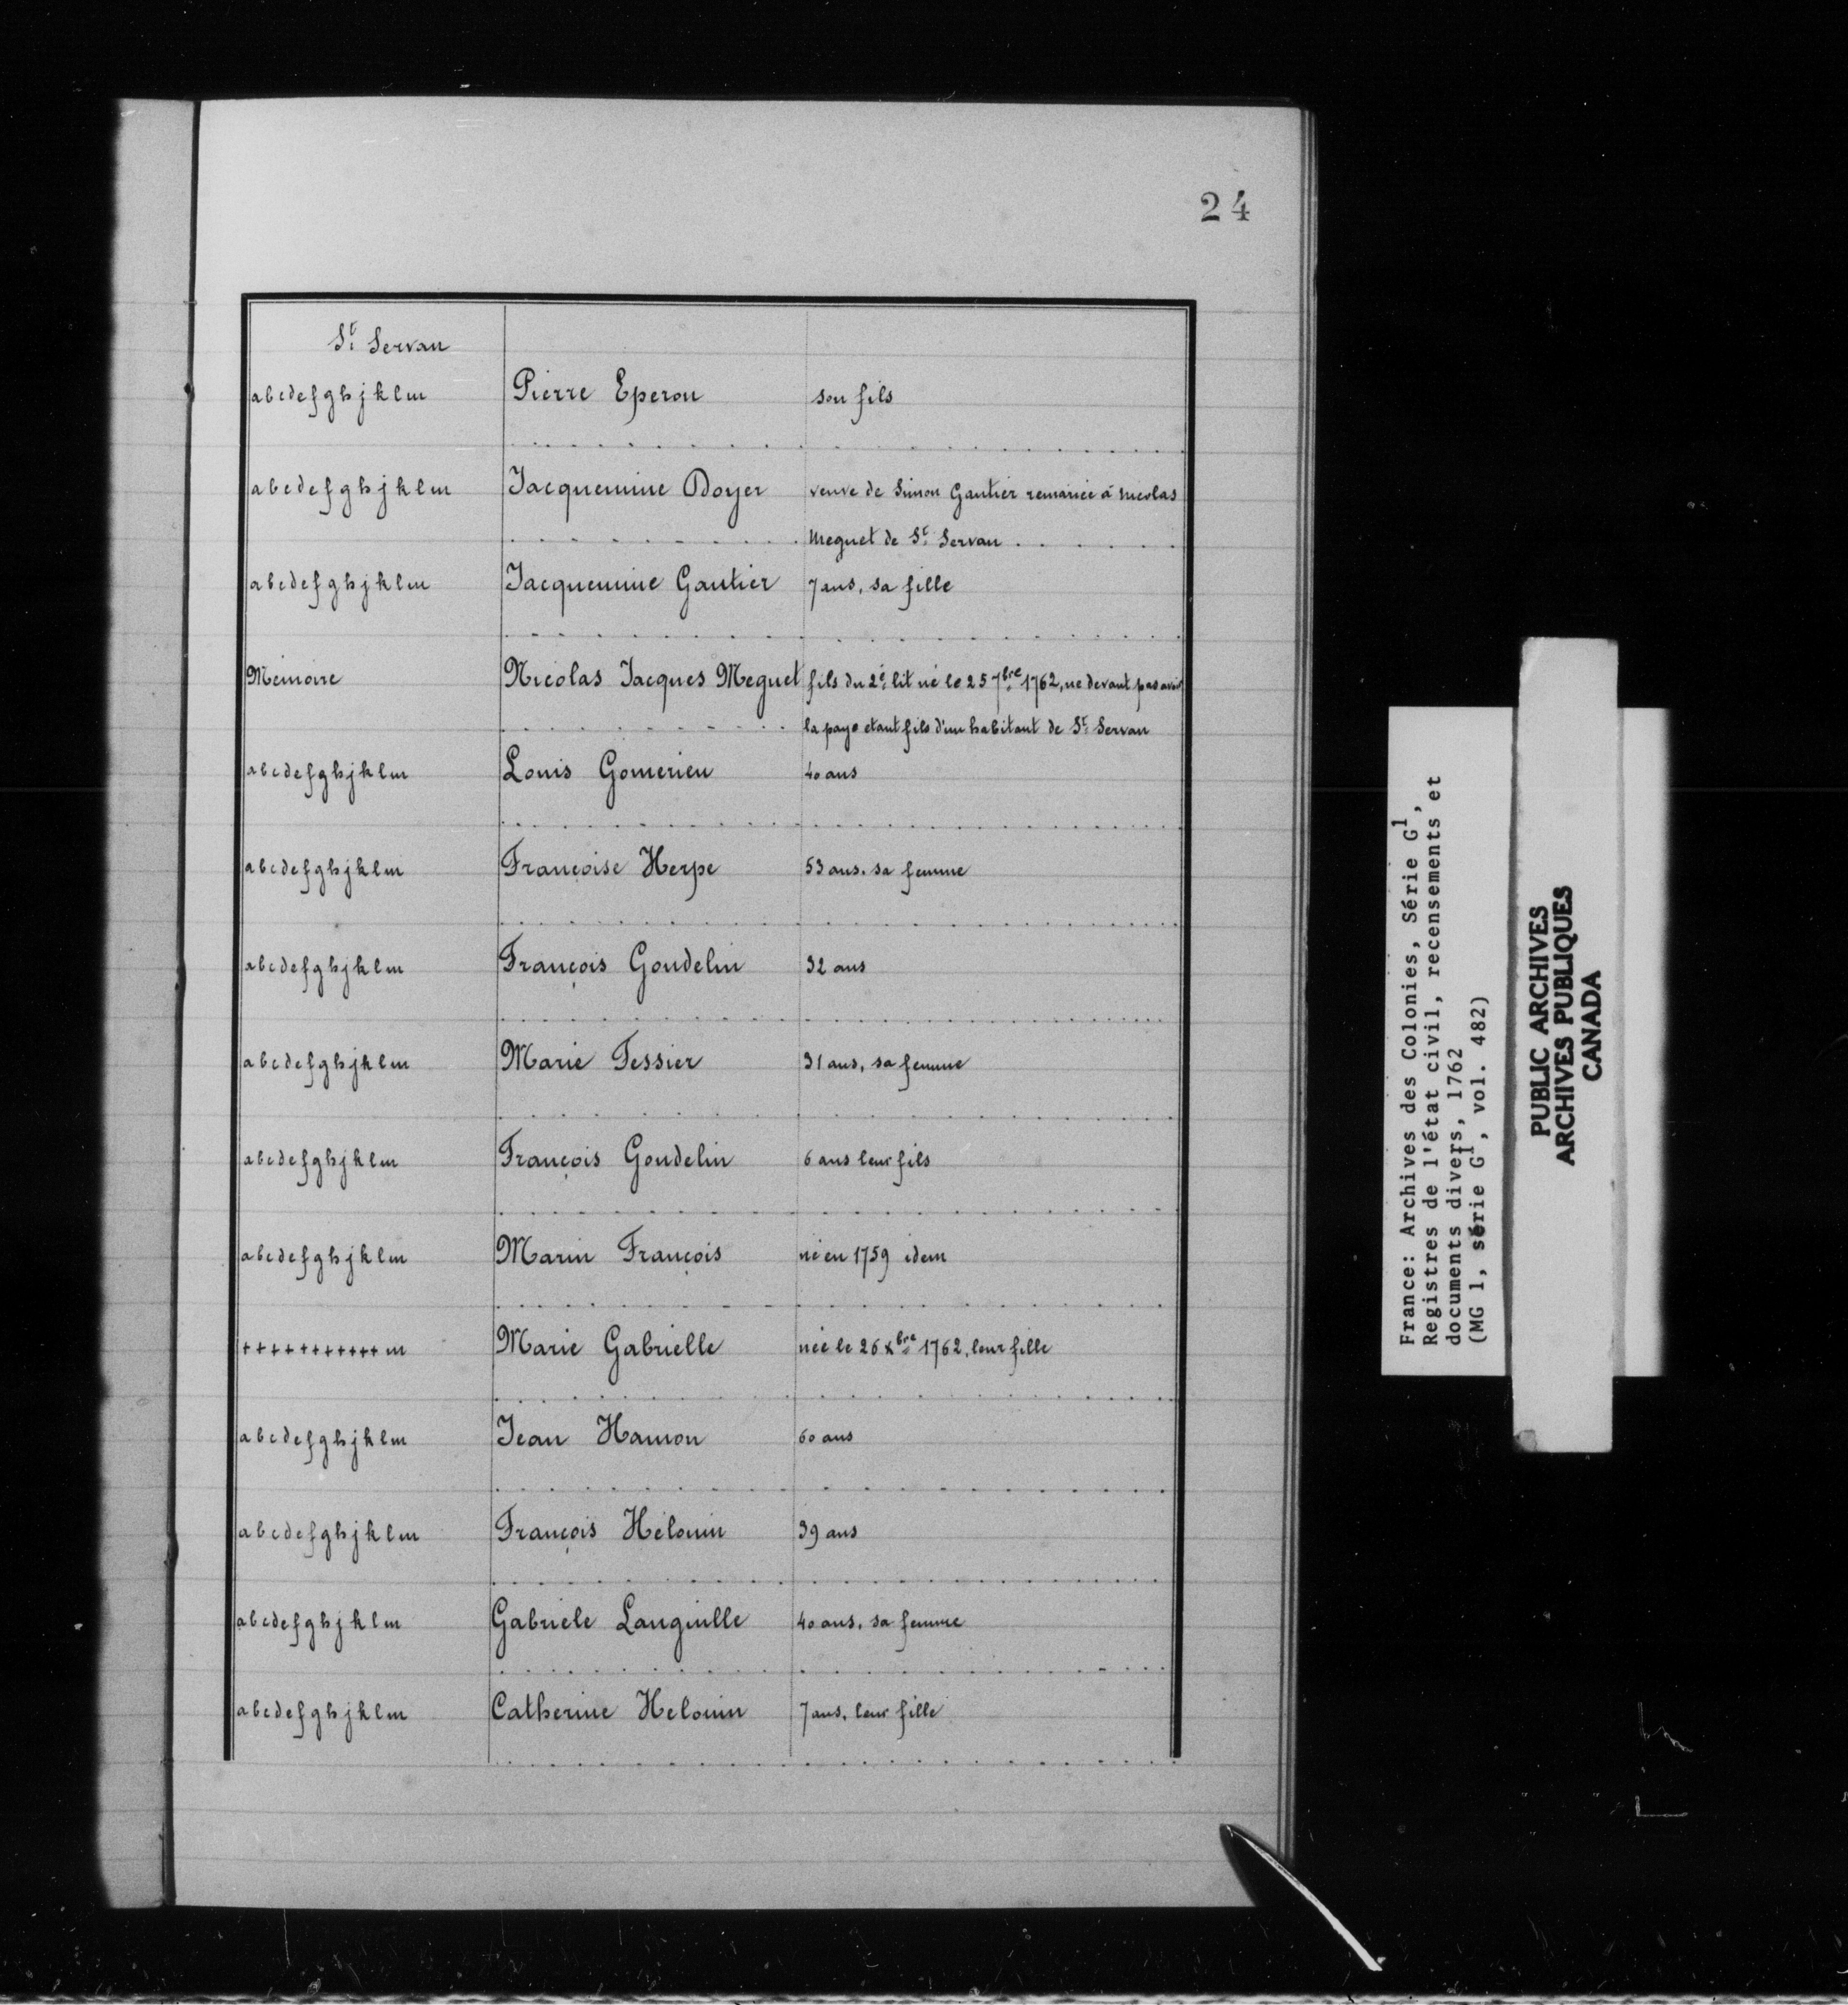 24
St Servan
abcdefghjklm Pierre Eperon son fils
abcdefghjklm Jacquemine Doyer veuve de Simon Gautier remariée à Nicolas
Meguet de St Servan
abcdefghjklm Jacquemine Gautier 7 ans, sa fille
Mémoire Nicolas Jacques Meguet fils du 2e lit né le 25 7bre 1762, ne devant pas avoir
la paye etant fils d'un habitant de St Servan
abcdefghjklm Louis Gomerieu 40 ans
abcdefghjklm Françoise Herpe 53 ans, sa femme
abcdefghjklm François Goudelin 32 ans
abcdefghjklm Marie Tessier 31 ans, sa femme
abcdefghjklm François Goudelin 6 ans leur fils
abcdefghjklm Marin François né en 1759 idem
+++++++++++m Marie Gabrielle née le 26 xbre 1762, leur fille
abcdefghjklm Jean Hamon 60 ans
abcdefghjklm François Hélouin 39 ans
abcdefghjklm Gabriele Languille 40 ans, sa femme
abcdefghjklm Catherine Helouin 7 ans, leur fille
France: Archives des Colonies, Série G1,
Registres de l'état civil, recensements et
documents divers, 1762
(MG 1, série G1, vol. 482)
PUBLIC ARCHIVES
ARCHIVES PUBLIQUES
CANADA